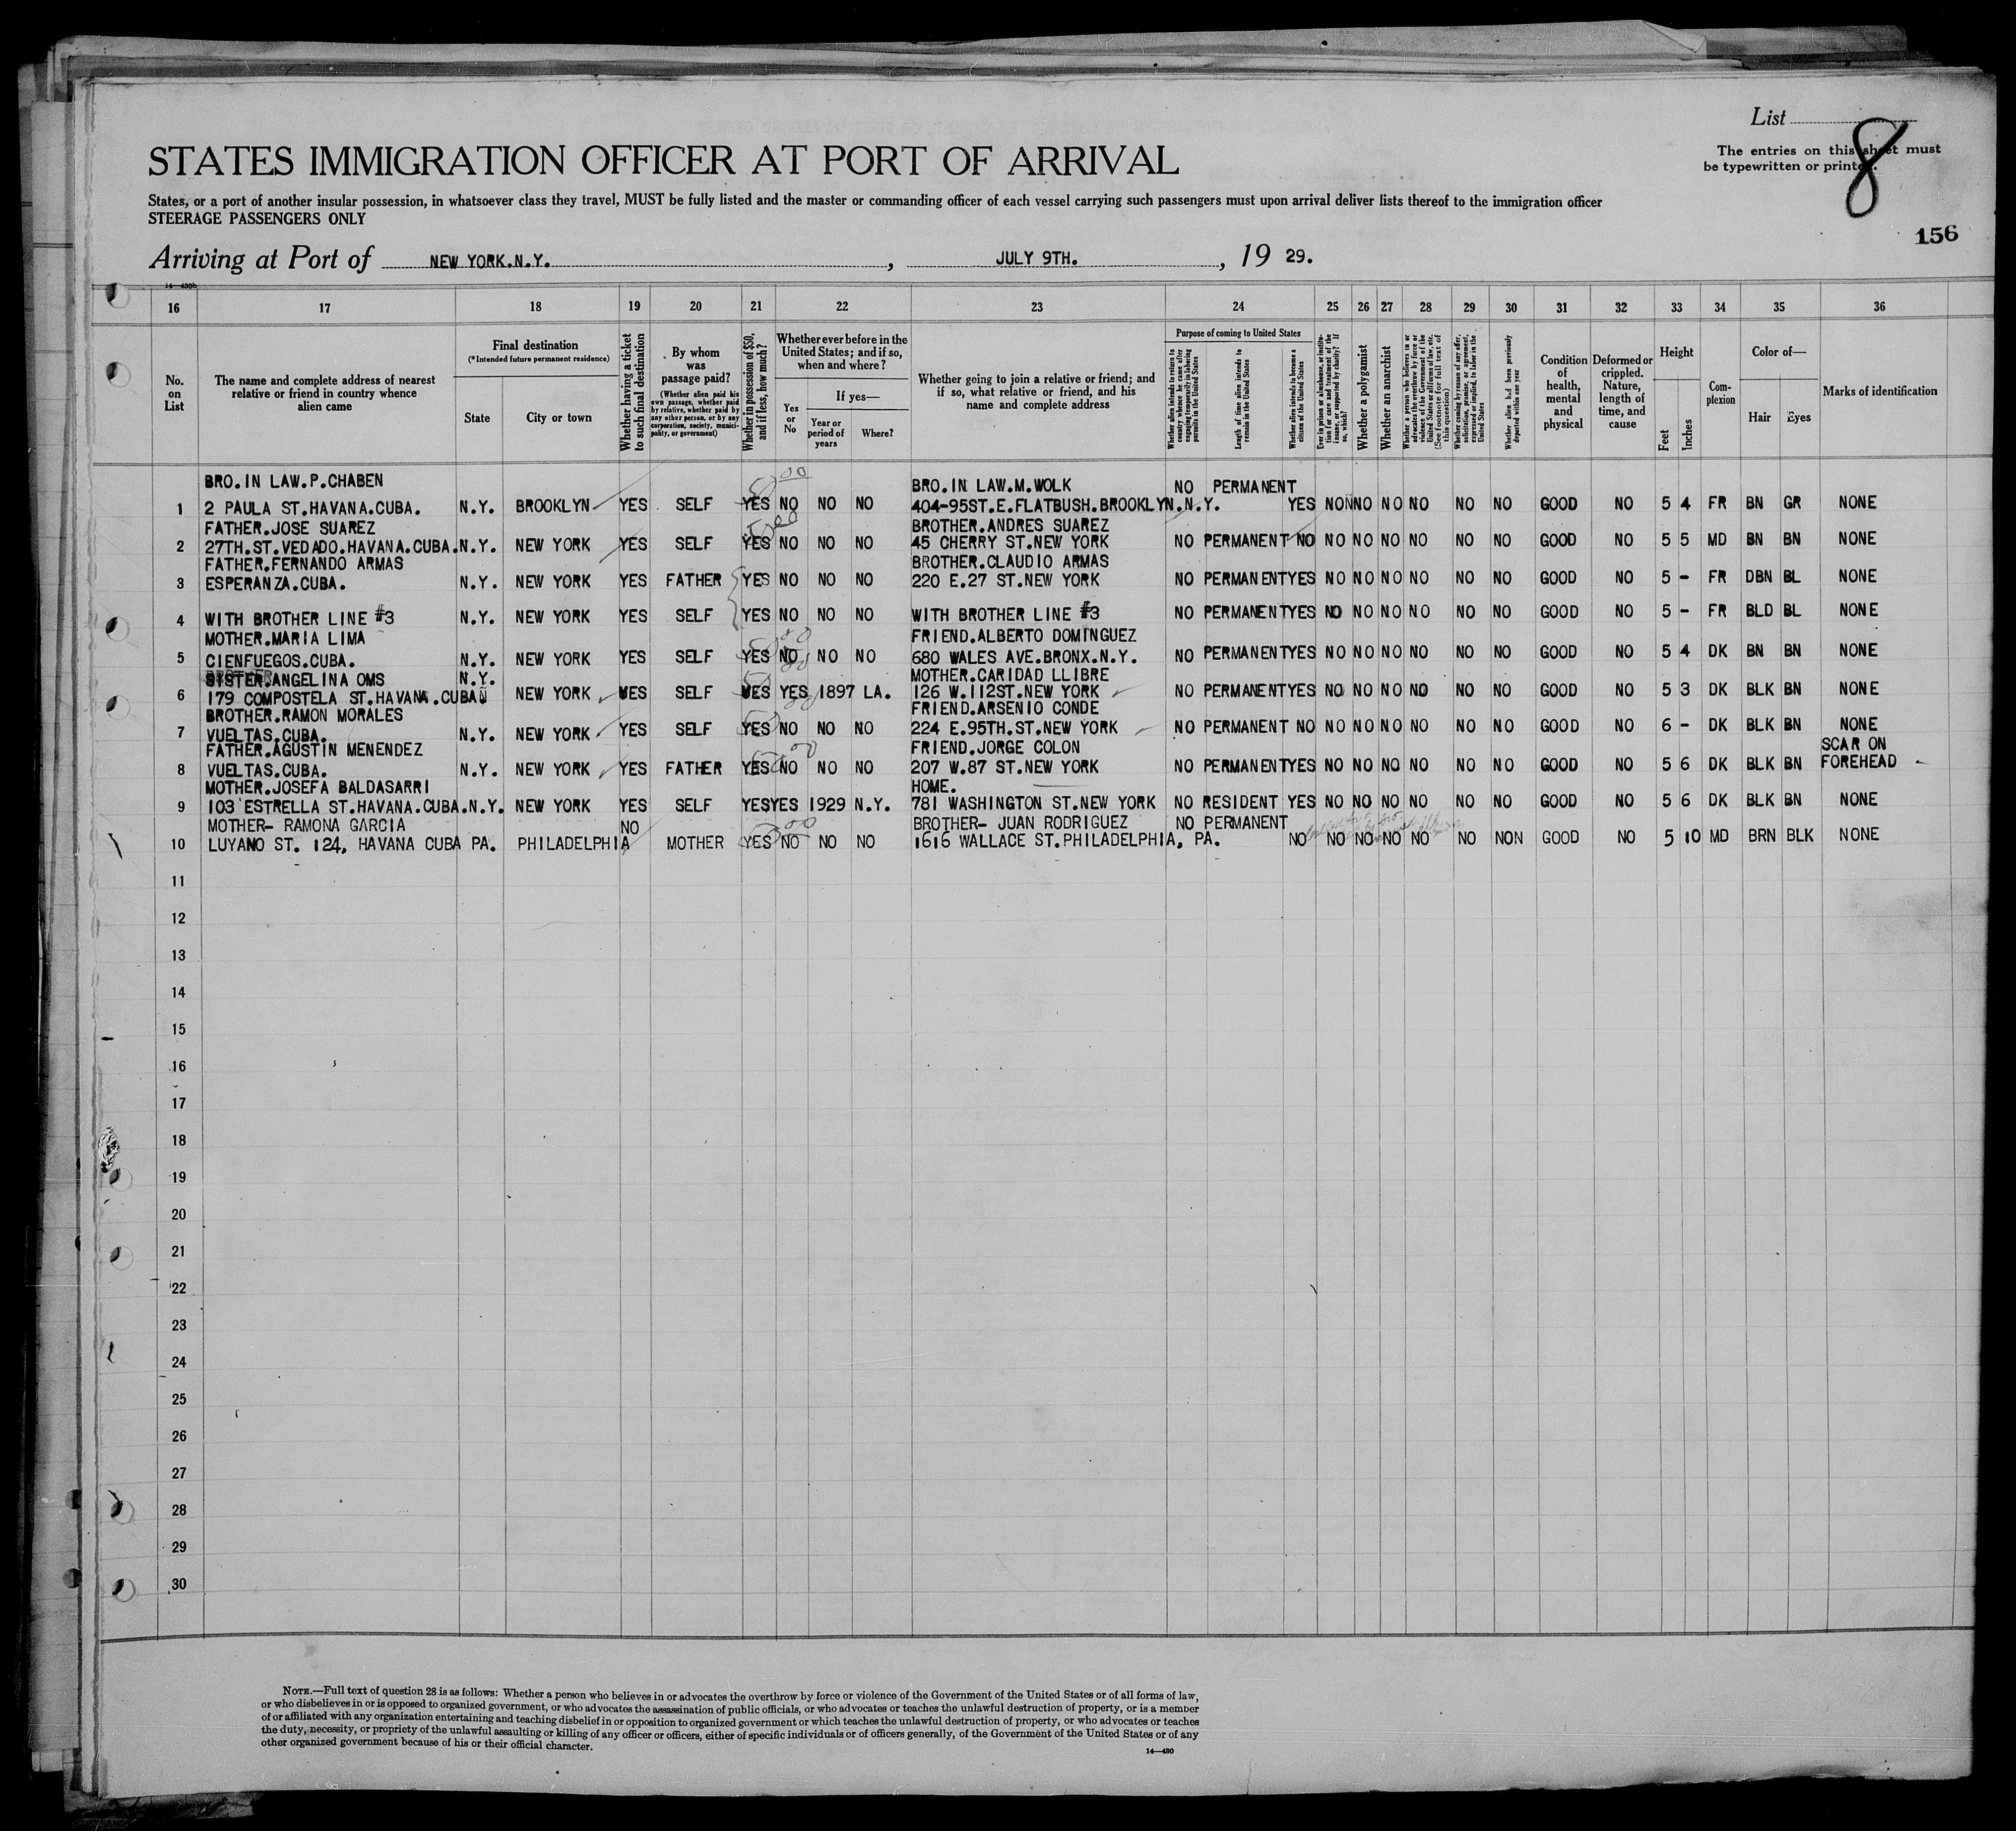 List
The entries on this sheet must
be typewritten or printed.
8
156
STATES IMMIGRATION OFFICER AT PORT OF ARRIVAL
States, or a port of another insular possession, in whatsoever class they travel, MUST be fully listed and the master or commanding officer of each vessel carrying such passengers must upon arrival deliver lists thereof to the immigration officer
STEERAGE PASSENGERS ONLY
Arriving at Port of NEW YORK.N.Y. , JULY 9TH. , 19 29.
14—430b
16 17 18 19 20 21 22 23 24 25 26 27 28 29 30 31 32 33 34 35 36
No. on List
The name and complete address of nearest relative or friend in country whence alien came
Final destination
(*Intended future permanent residence)
State
City or town
Whether having a ticket to such final destination
By whom was passage paid?
(Whether alien paid his own passage, whether paid by relative, whether paid by any other person, or by any corporation, society, municipality, or government)
Whether in possession of $50, and if less, how much?
Whether ever before in the United States; and if so, when and where?
Yes or No
If yes—
Year or period of years
Where?
Whether going to join a relative or friend; and if so, what relative or friend, and his name and complete address
Purpose of coming to United States
Whether alien intends to return to country whence he came after engaging temporarily in laboring pursuits in the United States
Length of time alien intends to remain in the United States
Whether alien intends to become a citizen of the United States
Ever in prison or almshouse, or institution for care and treatment of the insane, or supported by charity? If so, which?
Whether a polygamist
Whether an anarchist
Whether a person who believes in or advocates the overthrow by force or violence of the Government of the United States or all forms of law, etc. (See footnote for full text of this question)
Whether coming by reason of any offer, solicitation, promise, or agreement, expressed or implied, to labor in the United States
Whether alien had been previously deported within one year
Condition of health, mental and physical
Deformed or crippled. Nature, length of time, and cause
Height
Feet
Inches
Complexion
Color of—
Hair
Eyes
Marks of identification
BRO.IN LAW.P.CHABEN BRO.IN LAW.M.WOLK NO PERMANENT
1 2 PAULA ST.HAVANA.CUBA. N.Y. BROOKLYN YES SELF YES NO NO NO 404-95ST.E.FLATBUSH.BROOKLYN.N.Y. YES NO NO NO NO NO NO GOOD NO 5 4 FR BN GR NONE
FATHER.JOSE SUAREZ BROTHER.ANDRES SUAREZ
2 27TH.ST.VEDADO.HAVANA.CUBA. N.Y. NEW YORK YES SELF YES NO NO NO 45 CHERRY ST.NEW YORK NO PERMANENT NO NO NO NO NO NO NO GOOD NO 5 5 MD BN BN NONE
FATHER.FERNANDO ARMAS BROTHER.CLAUDIO ARMAS
3 ESPERANZA.CUBA. N.Y. NEW YORK YES FATHER YES NO NO NO 220 E.27 ST.NEW YORK NO PERMANENT YES NO NO NO NO NO NO GOOD NO 5 - FR DBN BL NONE
4 WITH BROTHER LINE #3 N.Y. NEW YORK YES SELF YES NO NO NO WITH BROTHER LINE #3 NO PERMANENT YES NO NO NO NO NO NO GOOD NO 5 - FR BLD BL NONE
MOTHER.MARIA LIMA FRIEND.ALBERTO DOMINGUEZ
5 CIENFUEGOS.CUBA. N.Y. NEW YORK YES SELF YES NO NO NO 680 WALES AVE.BRONX.N.Y. NO PERMANENT YES NO NO NO NO NO NO GOOD NO 5 4 DK BN BN NONE
SISTER.ANGELINA OMS N.Y. MOTHER.CARIDAD LLIBRE
6 179 COMPOSTELA ST.HAVANA.CUBA NEW YORK YES SELF YES YES 1897 LA. 126 W.112ST.NEW YORK NO PERMANENT YES NO NO NO NO NO NO GOOD NO 5 3 DK BLK BN NONE
BROTHER.RAMON MORALES FRIEND.ARSENIO CONDE
7 VUELTAS.CUBA. N.Y. NEW YORK YES SELF YES NO NO NO 224 E.95TH.ST.NEW YORK NO PERMANENT NO NO NO NO NO NO NO GOOD NO 6 - DK BLK BN NONE
FATHER.AGUSTIN MENENDEZ FRIEND.JORGE COLON SCAR ON
8 VUELTAS.CUBA. N.Y. NEW YORK YES FATHER YES NO NO NO 207 W.87 ST.NEW YORK NO PERMANENT YES NO NO NO NO NO NO GOOD NO 5 6 DK BLK BN FOREHEAD
MOTHER.JOSEFA BALDASARRI HOME.
9 103 ESTRELLA ST.HAVANA.CUBA. N.Y. NEW YORK YES SELF YES YES 1929 N.Y. 781 WASHINGTON ST.NEW YORK NO RESIDENT YES NO NO NO NO NO NO GOOD NO 5 6 DK BLK BN NONE
MOTHER- RAMONA GARCIA NO BROTHER- JUAN RODRIGUEZ NO PERMANENT
10 LUYANO ST. 124, HAVANA CUBA PA. PHILADELPHIA MOTHER YES NO NO NO 1616 WALLACE ST.PHILADELPHIA, PA. NO NO NO NO NO NO NON GOOD NO 5 10 MD BRN BLK NONE
11
12
13
14
15
16
17
18
19
20
21
22
23
24
25
26
27
28
29
30
NOTE.—Full text of question 28 is as follows: Whether a person who believes in or advocates the overthrow by force or violence of the Government of the United States or of all forms of law,
or who disbelieves in or is opposed to organized government, or who advocates the assassination of public officials, or who advocates or teaches the unlawful destruction of property, or is a member
of or affiliated with any organization entertaining and teaching disbelief in or opposition to organized government or which teaches the unlawful destruction of property, or who advocates or teaches
the duty, necessity, or propriety of the unlawful assaulting or killing of any officer or officers, either of specific individuals or of officers generally, of the Government of the United States or of any
other organized government because of his or their official character.
14—430